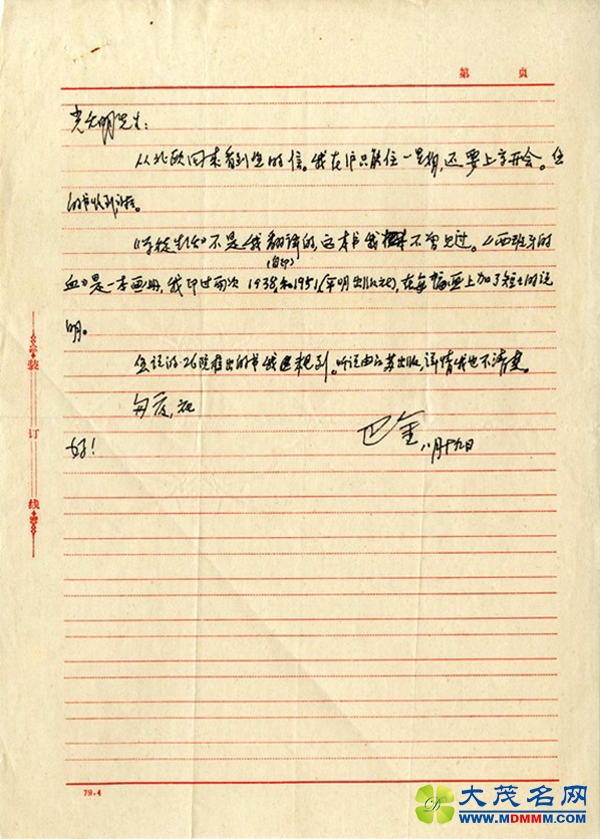 第 页
先生:
从北欧回来看到您的信。我在沪只能住一星期,还要上京开会。您
的书收到,谢谢。
不是我翻译的,这本书我不曾见过。《西班牙的
(自印)
血》是一本画册,我印过两次 1938和1951(平明出版社),在每幅画上加了短短的说
明。
您说的26院推出的书我还未见到。听说由江苏出版,详情我也不清楚。
匆复,祝
好!
巴金
八月十九日
装
订
线
79.4
大茂名网
WWW.MDMMM.COM